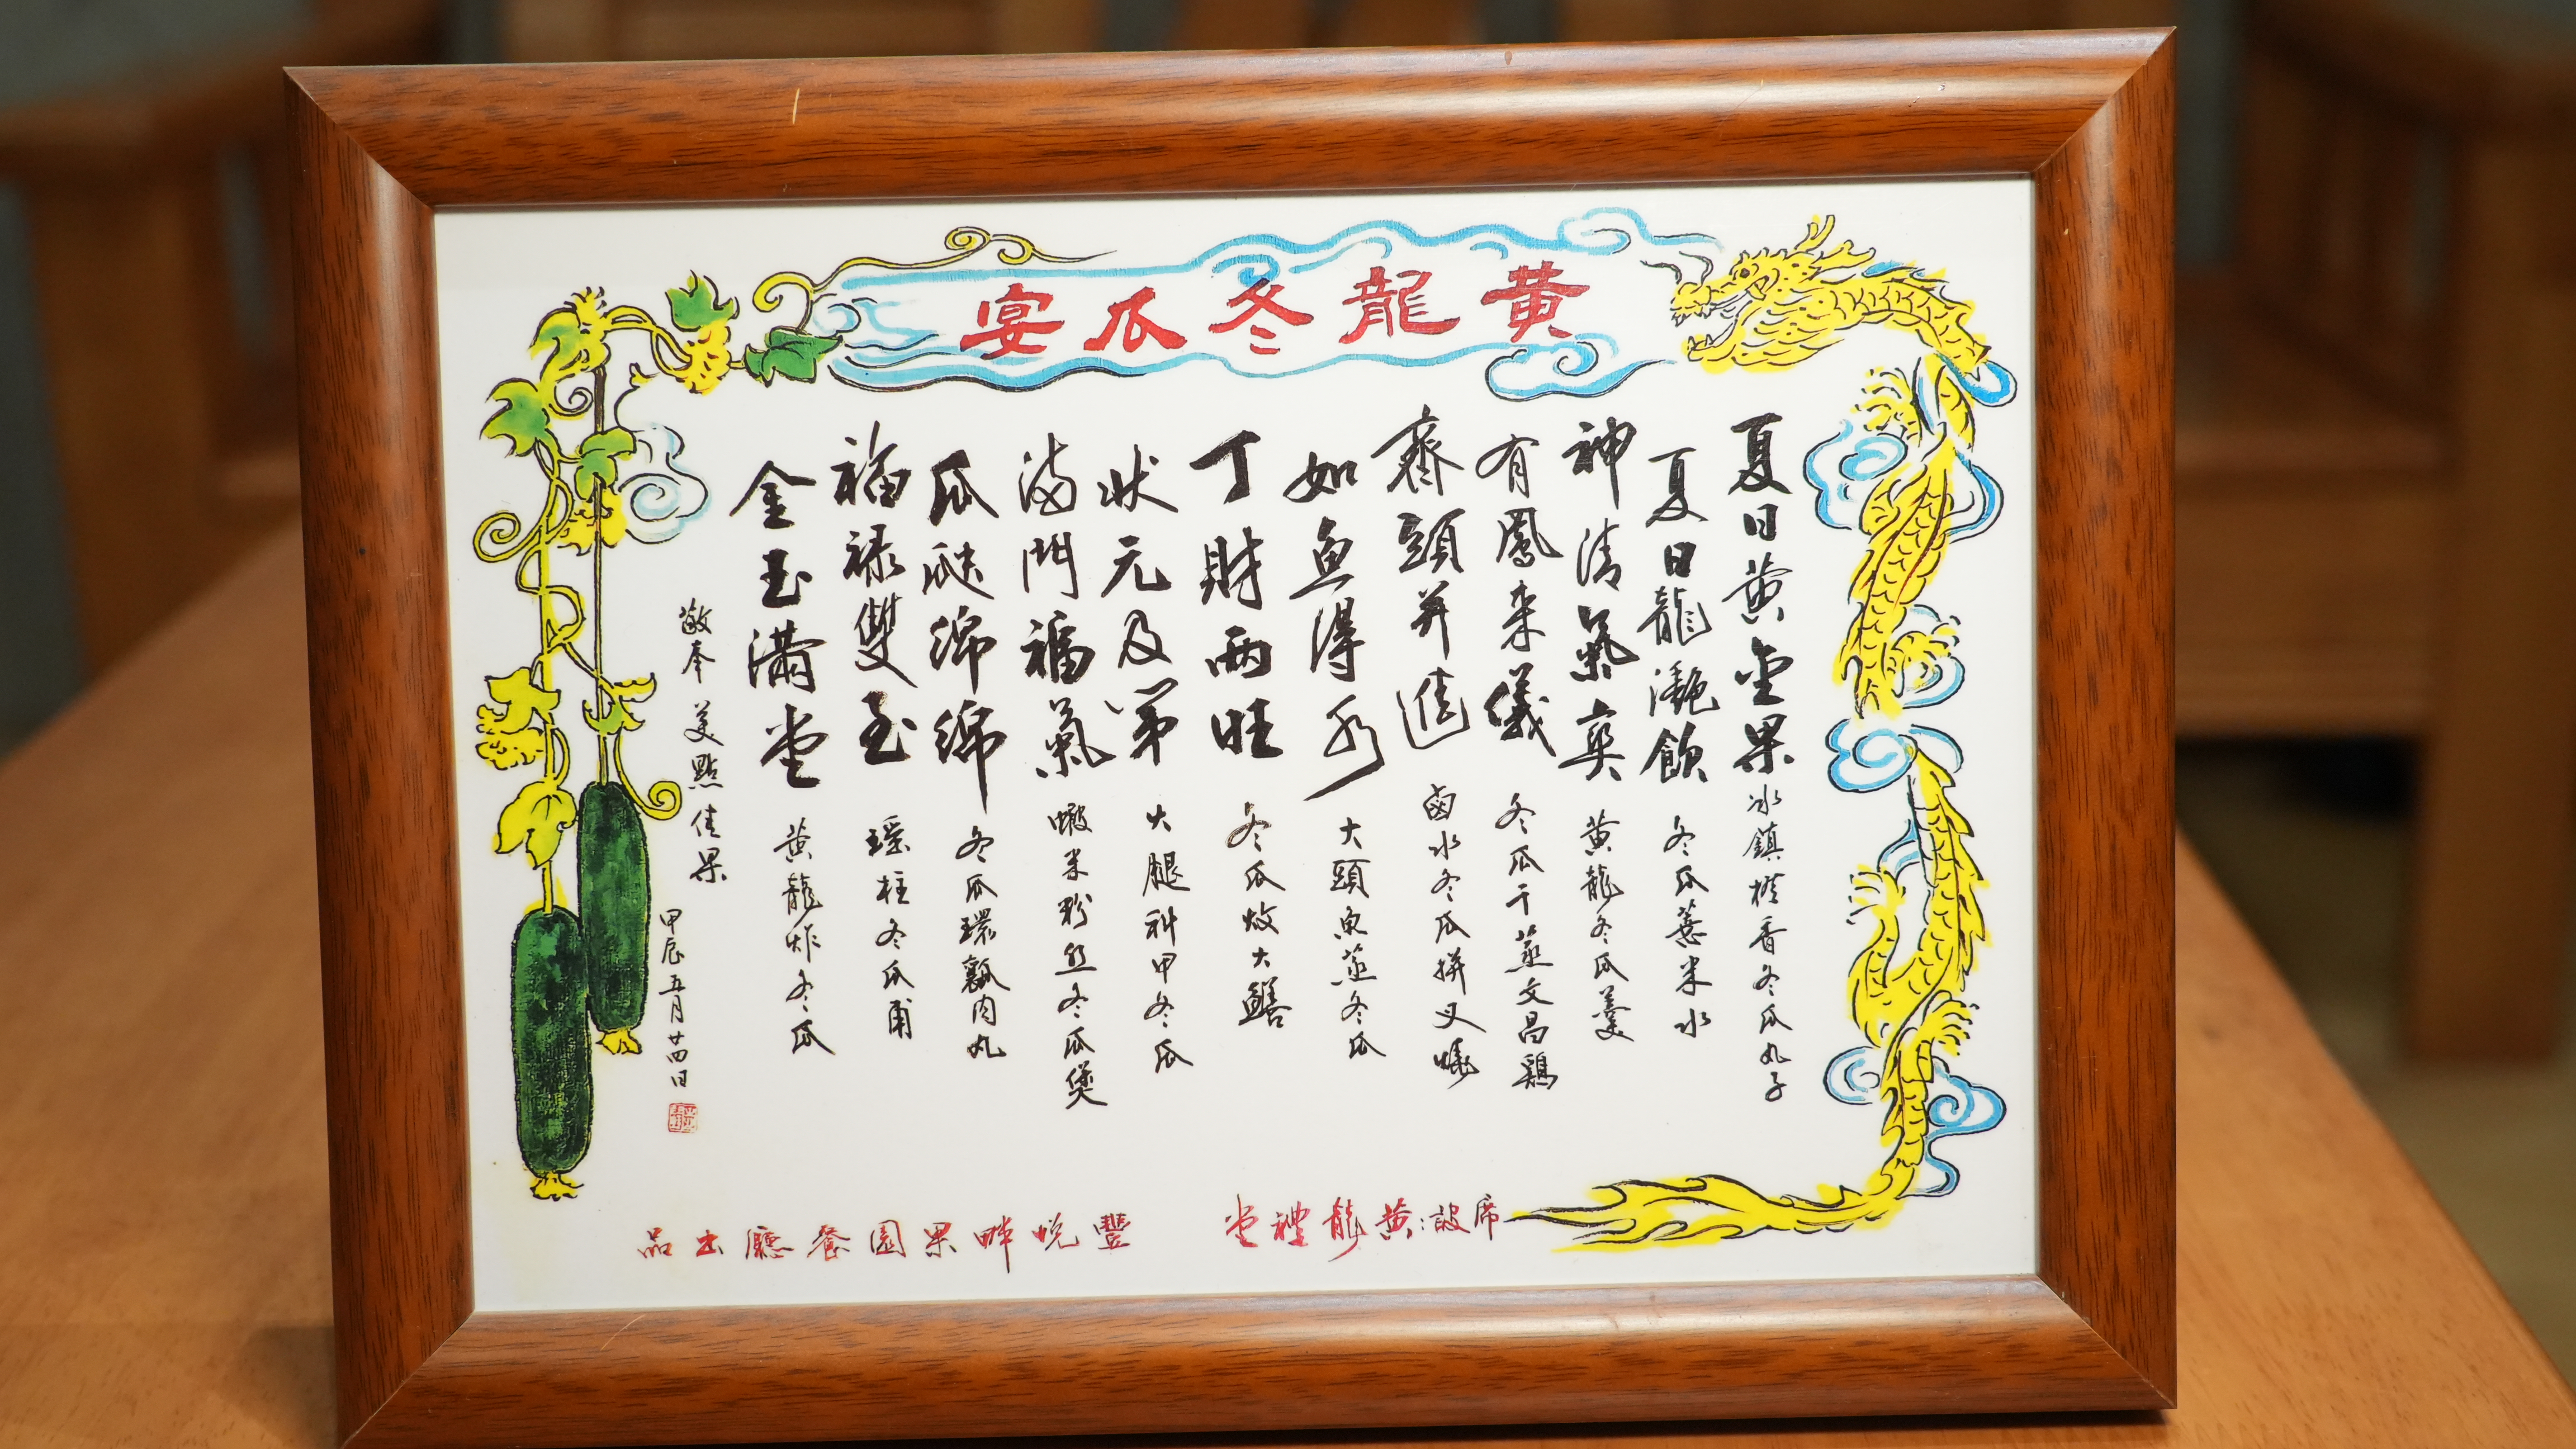 黃龍冬瓜宴
夏日黃金果 冰鎮橙香冬瓜丸子
夏日龍灔飲 冬瓜薏米水
神清氣爽 黃龍冬瓜羹
有鳳來儀 冬瓜干蒸文昌鷄
齊頭并進 鹵水冬瓜拼叉燒
如魚得水 大頭魚蒸冬瓜
丁財兩旺 冬瓜炆大鱔
狀元及第 火腿科甲冬瓜
滿門福氣 蝦米粉絲冬瓜煲
瓜瓞綿綿 冬瓜環瓤肉丸
福祿雙至 瑶柱冬瓜甫
金玉滿堂 黃龍炸冬瓜
敬奉 美點佳果
甲辰五月廿四日
席設:黃龍禮堂
豐悅畔果園餐廳出品